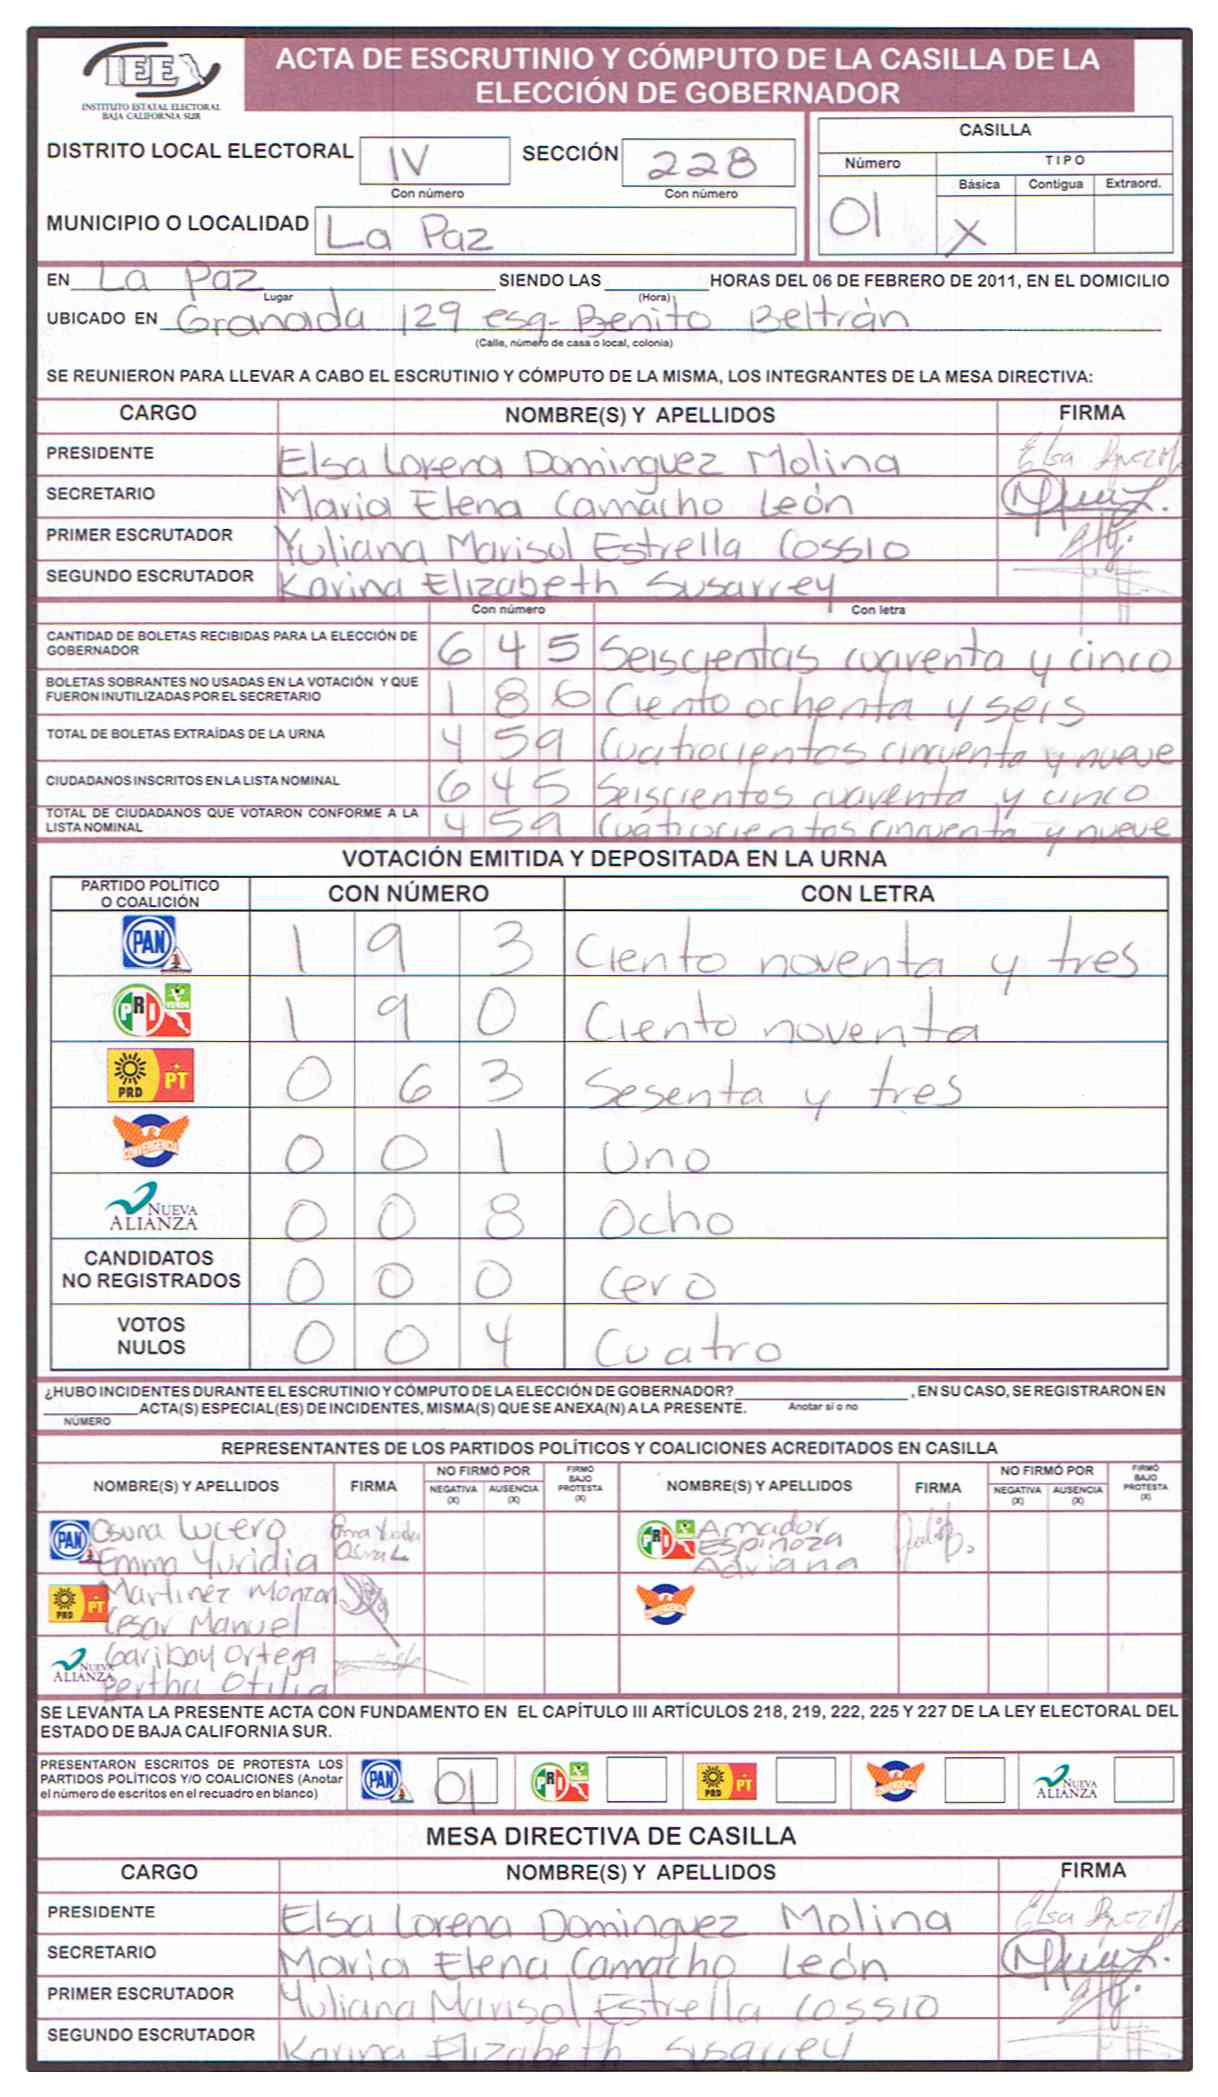 IEE
INSTITUTO ESTATAL ELECTORAL
BAJA CALIFORNIA SUR
ACTA DE ESCRUTINIO Y CÓMPUTO DE LA CASILLA DE LA
ELECCIÓN DE GOBERNADOR
DISTRITO LOCAL ELECTORAL IV SECCIÓN 228
Con número Con número
MUNICIPIO O LOCALIDAD La Paz
CASILLA
Número TIPO
Básica Contigua Extraord.
01 X
EN La Paz SIENDO LAS HORAS DEL 06 DE FEBRERO DE 2011, EN EL DOMICILIO
Lugar (Hora)
UBICADO EN Granada 129 esq. Benito Beltrán
(Calle, número de casa o local, colonia)
SE REUNIERON PARA LLEVAR A CABO EL ESCRUTINIO Y CÓMPUTO DE LA MISMA, LOS INTEGRANTES DE LA MESA DIRECTIVA:
CARGO NOMBRE(S) Y APELLIDOS FIRMA
PRESIDENTE Elsa Lorena Dominguez Molina
SECRETARIO Maria Elena Camacho León
PRIMER ESCRUTADOR Yuliana Marisol Estrella Cossio
SEGUNDO ESCRUTADOR Karina Elizabeth Susarrey
Con número Con letra
CANTIDAD DE BOLETAS RECIBIDAS PARA LA ELECCIÓN DE
GOBERNADOR 6 4 5 Seiscientas cuarenta y cinco
BOLETAS SOBRANTES NO USADAS EN LA VOTACIÓN Y QUE
FUERON INUTILIZADAS POR EL SECRETARIO 1 8 6 Ciento ochenta y seis
TOTAL DE BOLETAS EXTRAÍDAS DE LA URNA 4 5 9 Cuatrocientos cincuenta y nueve
CIUDADANOS INSCRITOS EN LA LISTA NOMINAL 6 4 5 Seiscientos cuarenta y cinco
TOTAL DE CIUDADANOS QUE VOTARON CONFORME A LA
LISTA NOMINAL 4 5 9 Cuatrocientos cincuenta y nueve
VOTACIÓN EMITIDA Y DEPOSITADA EN LA URNA
PARTIDO POLÍTICO
O COALICIÓN CON NÚMERO CON LETRA
PAN 1 9 3 Ciento noventa y tres
PRI VERDE 1 9 0 Ciento noventa
PRD PT 0 6 3 Sesenta y tres
CONVERGENCIA 0 0 1 Uno
NUEVA ALIANZA 0 0 8 Ocho
CANDIDATOS
NO REGISTRADOS 0 0 0 Cero
VOTOS
NULOS 0 0 4 Cuatro
¿HUBO INCIDENTES DURANTE EL ESCRUTINIO Y CÓMPUTO DE LA ELECCIÓN DE GOBERNADOR? , EN SU CASO, SE REGISTRARON EN
ACTA(S) ESPECIAL(ES) DE INCIDENTES, MISMA(S) QUE SE ANEXA(N) A LA PRESENTE. Anotar sí o no
NÚMERO
REPRESENTANTES DE LOS PARTIDOS POLÍTICOS Y COALICIONES ACREDITADOS EN CASILLA
NOMBRE(S) Y APELLIDOS FIRMA NO FIRMÓ POR NEGATIVA (X) AUSENCIA (X) FIRMÓ BAJO PROTESTA (X) NOMBRE(S) Y APELLIDOS FIRMA NO FIRMÓ POR NEGATIVA (X) AUSENCIA (X) FIRMÓ BAJO PROTESTA (X)
PAN Osuna Lucero
Emma Yuridia
PRI Amador
Espinoza
Adriana
PRD PT Martinez Monzon
Cesar Manuel
CONVERGENCIA
NUEVA ALIANZA Garibay Ortega
Bertha Otilia
SE LEVANTA LA PRESENTE ACTA CON FUNDAMENTO EN EL CAPÍTULO III ARTÍCULOS 218, 219, 222, 225 Y 227 DE LA LEY ELECTORAL DEL
ESTADO DE BAJA CALIFORNIA SUR.
PRESENTARON ESCRITOS DE PROTESTA LOS
PARTIDOS POLÍTICOS Y/O COALICIONES (Anotar
el número de escritos en el recuadro en blanco)
PAN 01 PRI PRD PT CONVERGENCIA NUEVA ALIANZA
MESA DIRECTIVA DE CASILLA
CARGO NOMBRE(S) Y APELLIDOS FIRMA
PRESIDENTE Elsa Lorena Dominguez Molina
SECRETARIO Maria Elena Camacho León
PRIMER ESCRUTADOR Yuliana Marisol Estrella Cossio
SEGUNDO ESCRUTADOR Karina Elizabeth Susarrey